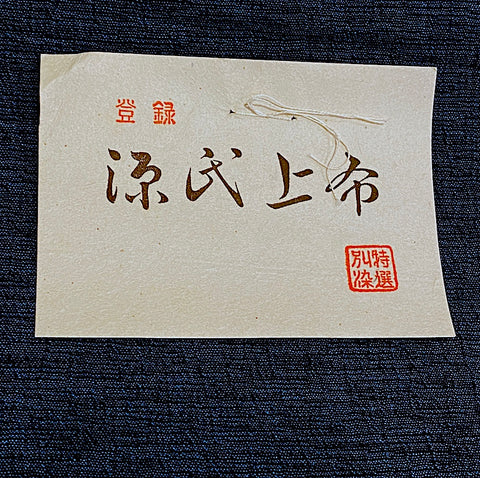 登録
源氏上布
特選
別染